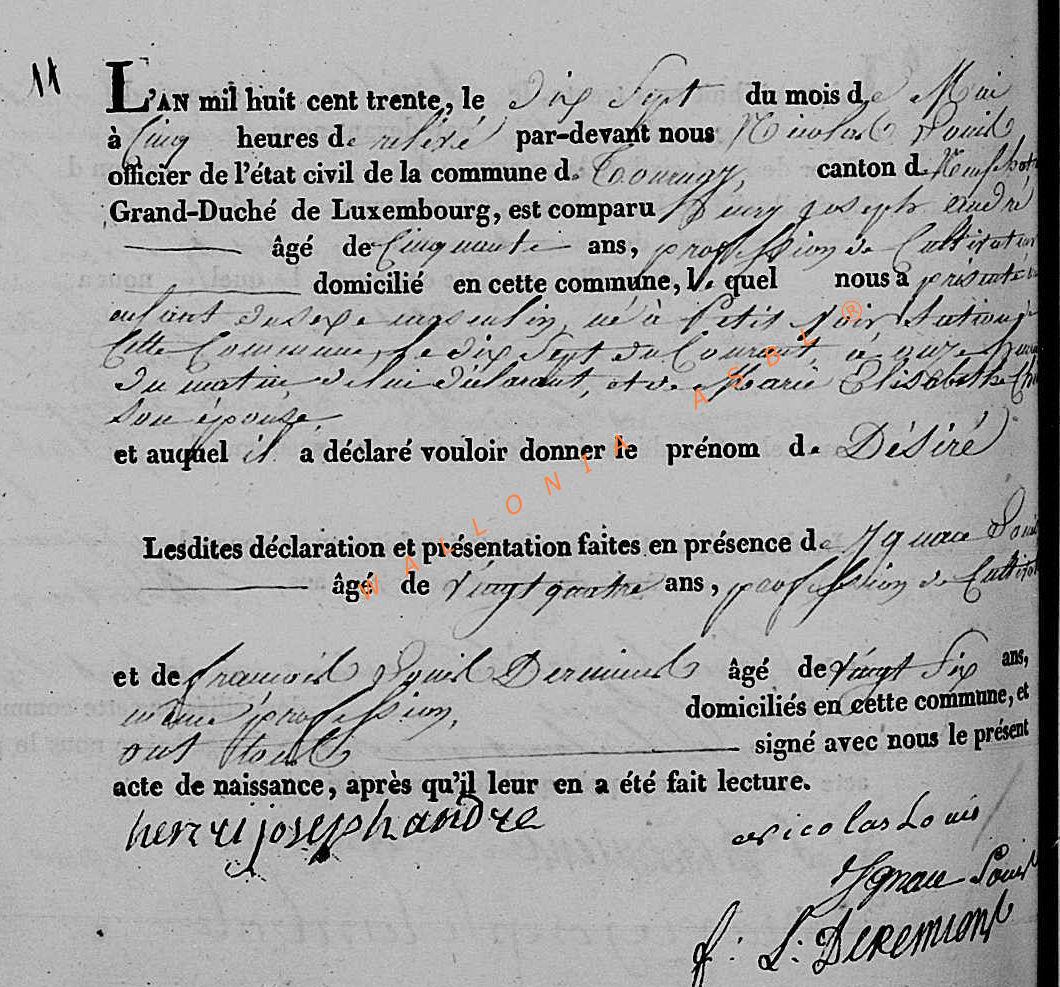 11
L'AN mil huit cent trente, le dix Sept du mois de Mai
à Cinq heures de relevé par-devant nous Nicolas Louis
officier de l'état civil de la commune de Tournay, canton de Neufchat
Grand-Duché de Luxembourg, est comparu henry joseph andré
âgé de Cinquante ans, profession de Cultivateur
domicilié en cette commune, Le quel nous a présenté
enfant du sexe masculin, né à Petit Voir Section
Cette Commune, le dix Sept du Courant, à onze heures
du matin de lui déclarant, et de Marie Elisabethe
son épouse,
et auquel il a déclaré vouloir donner le prénom de Désiré
Lesdites déclaration et présentation faites en présence de Ignace Louis
âgé de vingt quatre ans, profession de Cultivat
et de francois Louis Dermience âgé de vingt Six ans,
même profession, domiciliés en cette commune, et
ont tous signé avec nous le présent
acte de naissance, après qu'il leur en a été fait lecture.
henri joseph andre
Nicolas Louis
Ignace Louis
f: L: Deremiens
WALLONIA ASBL ®